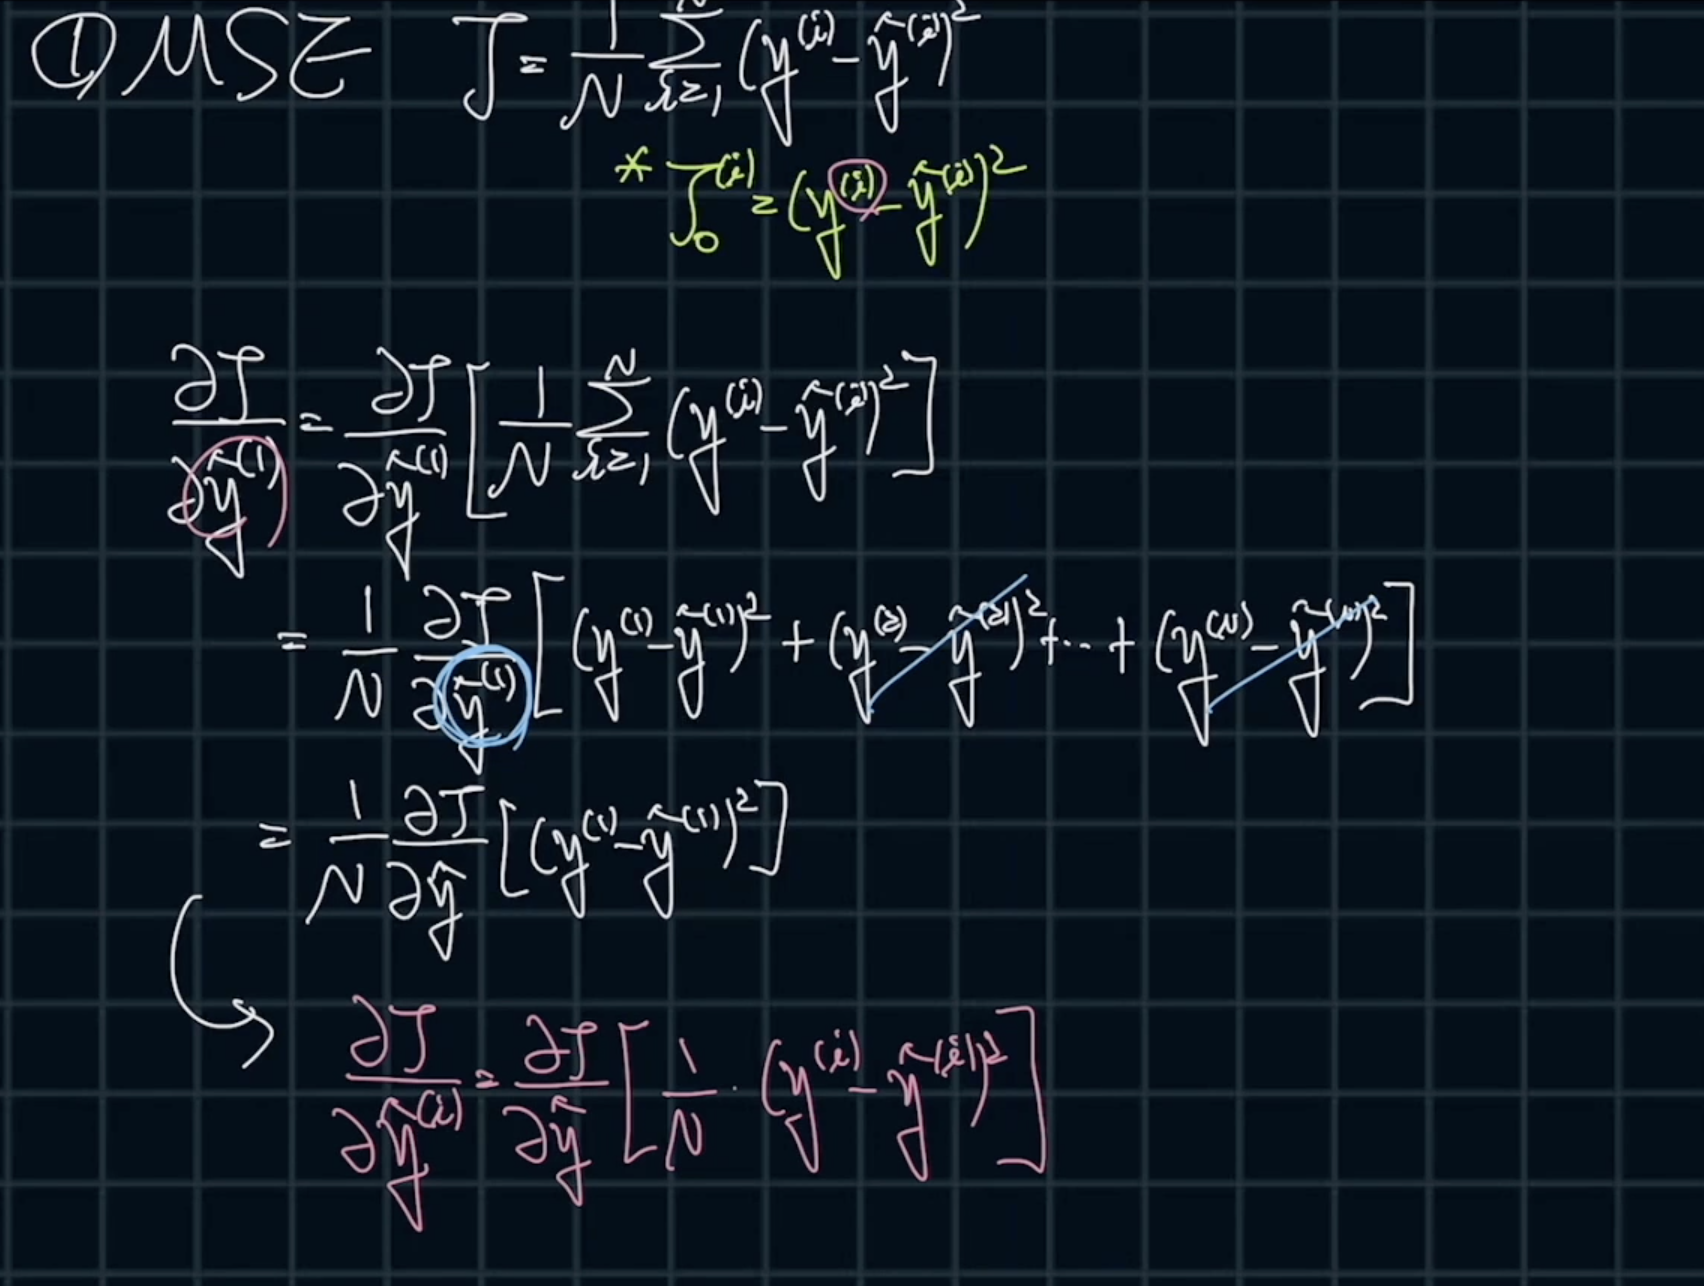 ① MSE J = 1/N Σ_{i=1}^{N} (y^(i) - ŷ^(i))²
* J_0^(i) = (y^(i) - ŷ^(i))²
∂J/∂ŷ^(1) = ∂J/∂ŷ^(1) [1/N Σ_{i=1}^{N} (y^(i) - ŷ^(i))²]
= 1/N ∂J/∂ŷ^(1) [(y^(1) - ŷ^(1))² + (y^(2) - ŷ^(2))² + ... + (y^(N) - ŷ^(N))²]
= 1/N ∂J/∂ŷ [(y^(1) - ŷ^(1))²]
∂J/∂ŷ^(i) = ∂J/∂ŷ [1/N · (y^(i) - ŷ^(i))²]